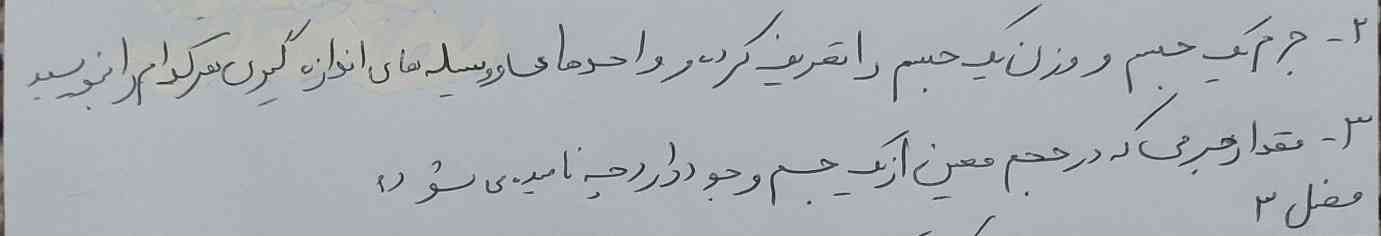 ۲- جرم یک جسم و وزن یک جسم را تعریف کرده و واحدها و وسیله های اندازه گیری هرکدام را بنویسید
۳- مقدار جرمی که در حجم معین از یک جسم وجود دارد چه نامیده می شود؟
فصل ۳